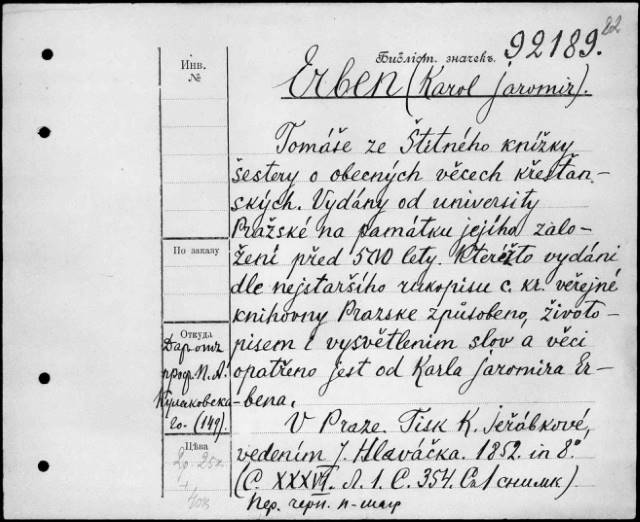 22
Библіот. значекъ. 92189.
Инв.
№
Erben (Karol Jaromir).
Tomáše ze Štitného knížky
šestery o obecných věcech křesťan-
ských. Vydány od university
Pražské na památku jejího zalo-
žení před 500 lety. Kteréžto vydáni
dle nejstaršího rukopisu c. kr. veřejné
knihovny Prazske způsobeno, životo-
pisem i vysvětlenim slov a věci
opatřeno jest od Karla Jaromira Er-
bena.
V Praze. Tisk K. Jeřábkové,
vedením J. Hlaváčka. 1852. in 8º
(C. XXXVI. Л. 1. С. 354. Съ 1 снимк)
Пер. черн. п-шагр
По заказу
Откуда
Даръ отъ
проф. П. А.
Кулаковска-
го. (149)
Цѣна
2р. 25к.
+